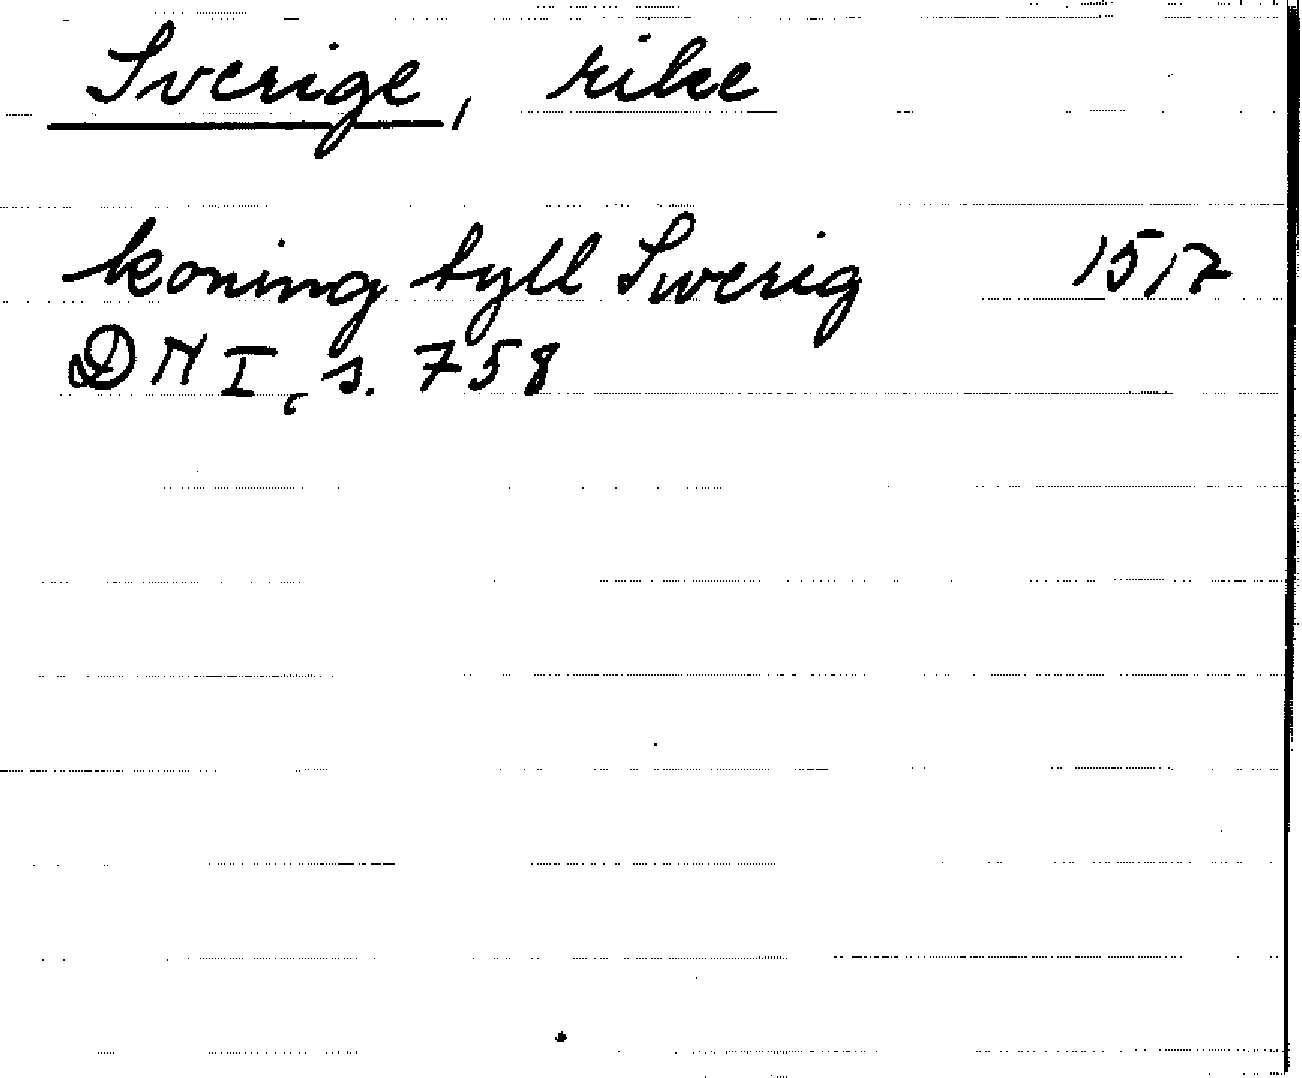 Sverige, rike
koning tyll Swerig 1517
DN I, s. 758